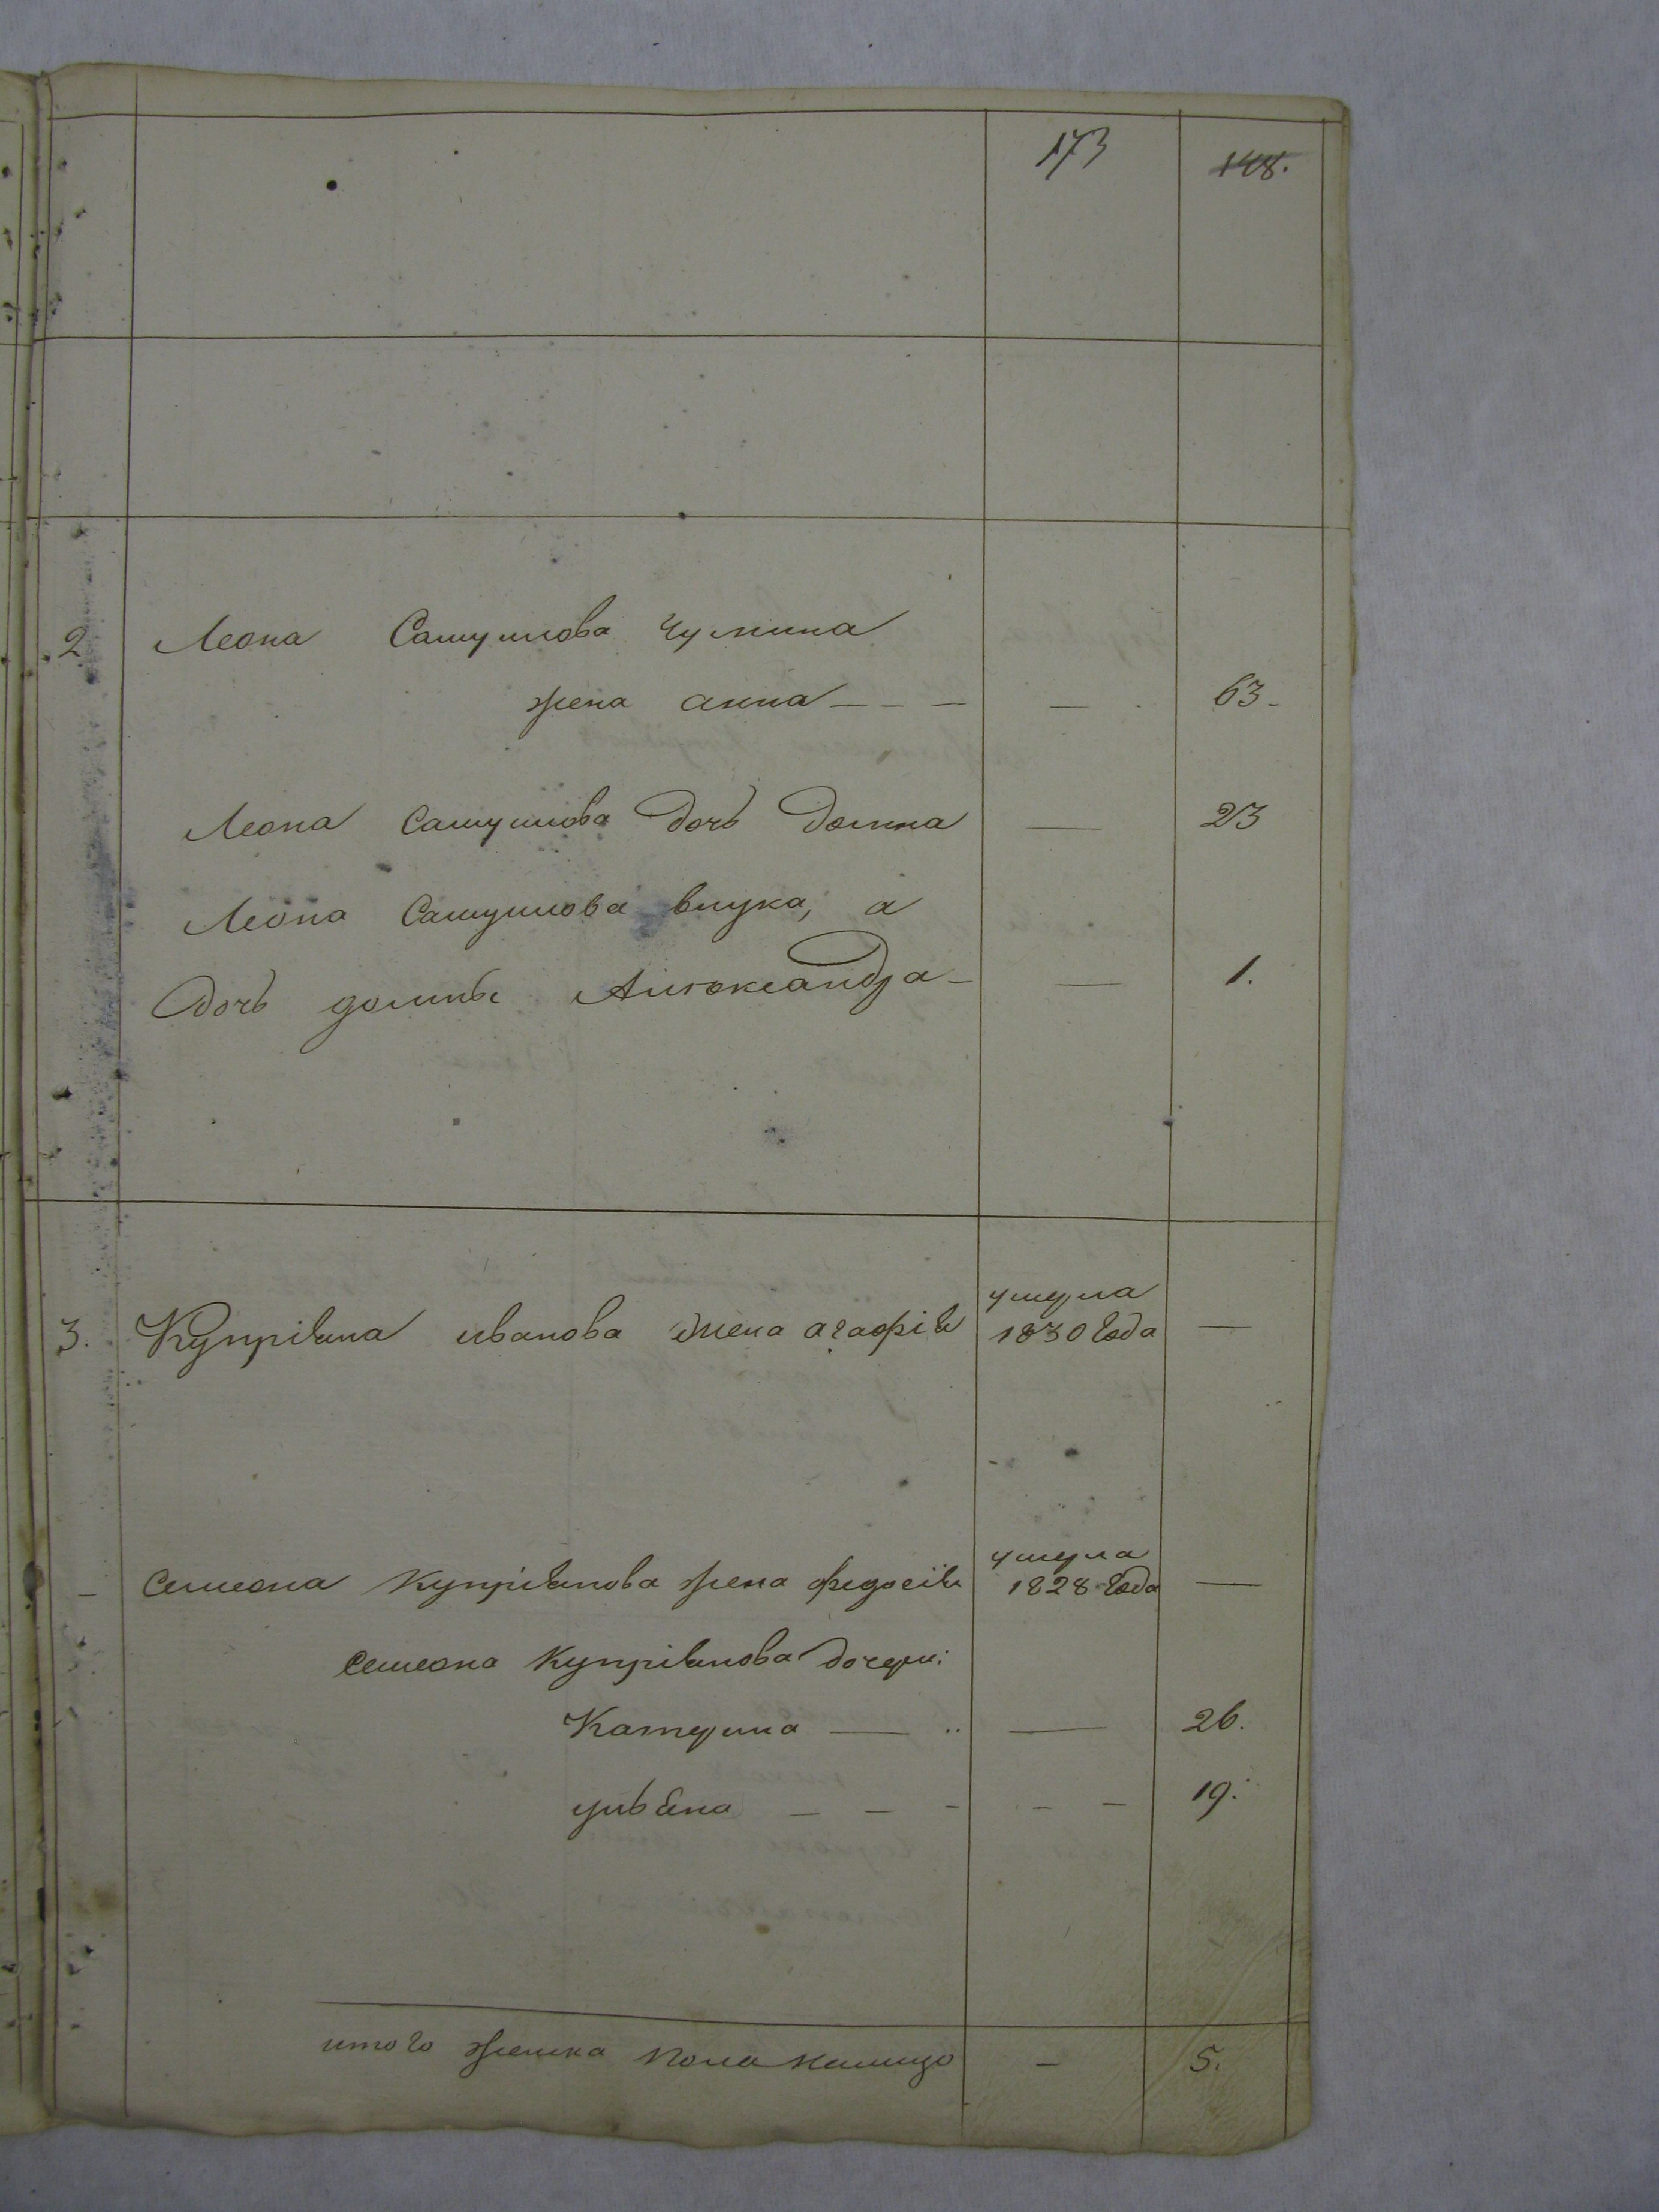 173 148.
2 Леона Самуилова Чумина
жена анна — — — — 63 -
Леона Самуилова дочь домна — 23
Леона Самуилова внука, а
дочь домны Алѣксандра — — 1.
умерла
3. Купріяна иванова жена агафія 1830 года —
умерла
— Симеона Купріянова жена федосія 1828 года —
Симеона Купріянова дочери:
Катерина — — 26.
ульяна — — — — — 19.
итого женска пола налицо — 5.